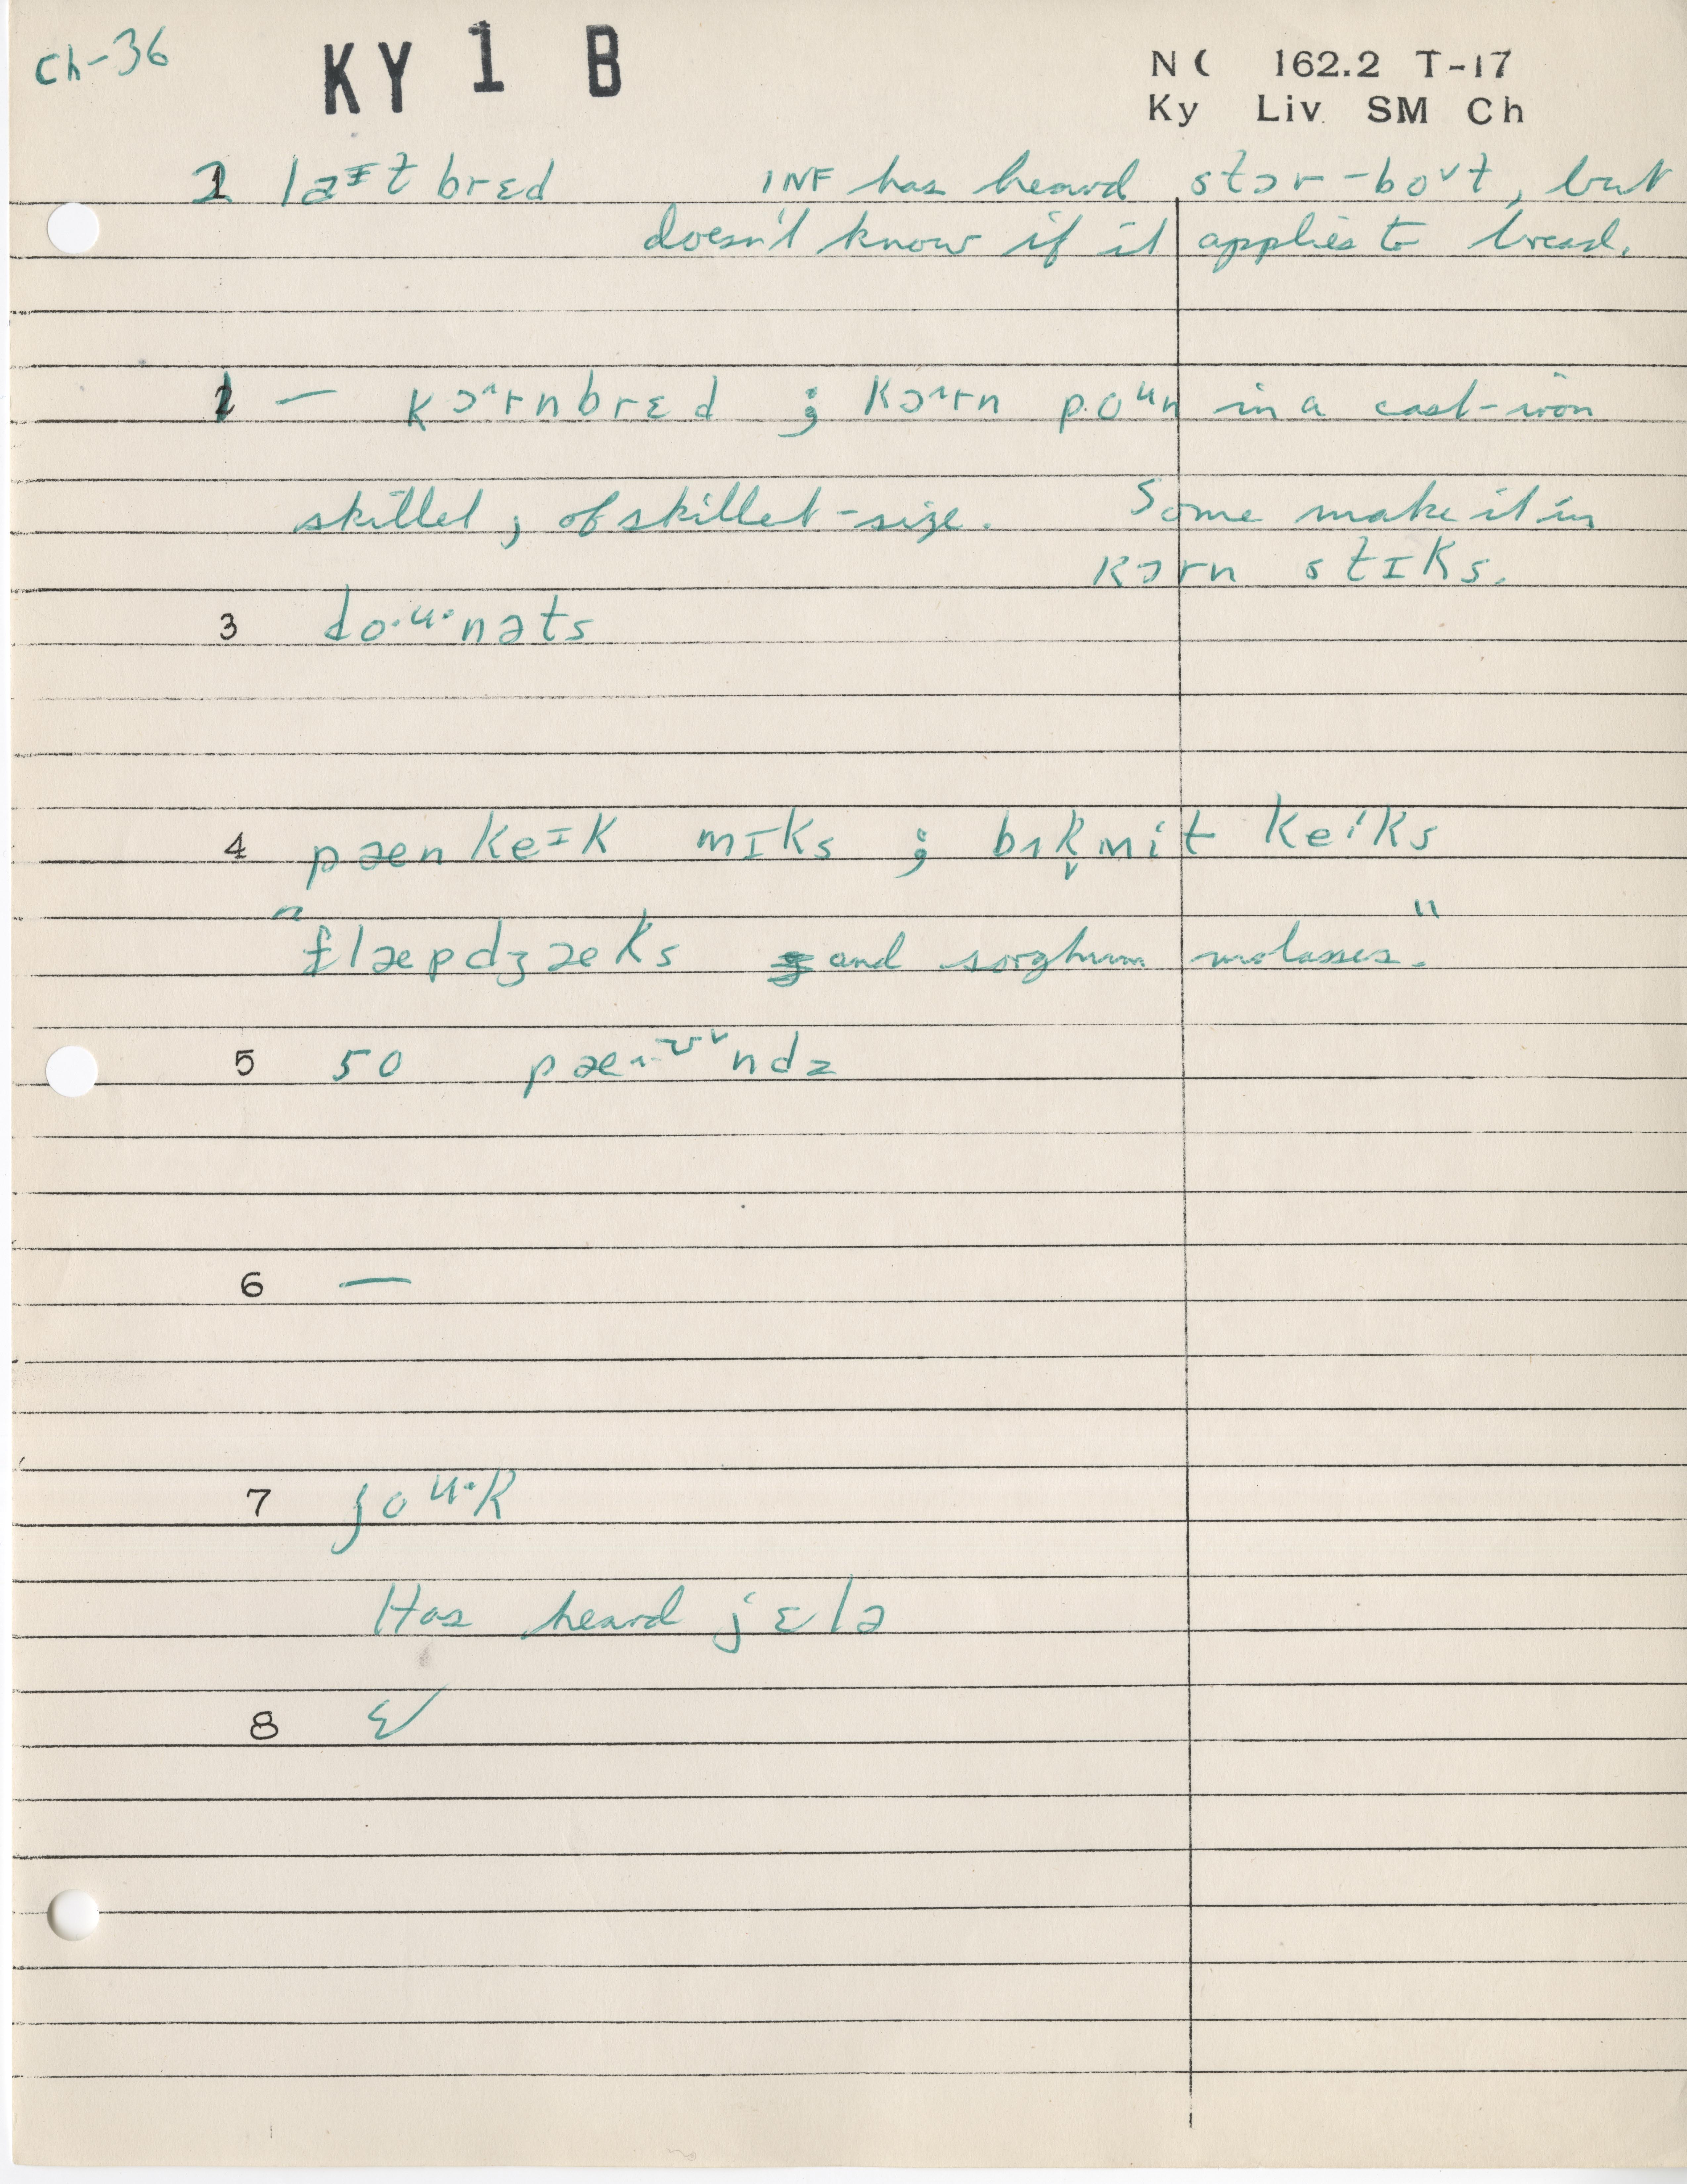 ch-36
KY 1 B
N C 162.2 T-17
Ky Liv. SM Ch
1 laᵻt brɛd INF has heard stɔr-boᵛt, but
doesn't know if it applies to bread.
2 — kɔ^rnbrɛd ; kɔ^rn poᵘn in a cast-iron
skillet ; of skillet-size. Some make it in
kɔrn stɪks.
3 do·ᵘ·nəts
4 pæn keᶦk mɪks ; bʌk̬ʍit keᶦks
"flæpdʒæks and sorghum molasses."
5 50 pæ^·ᶷᵛndz
6 —
7 joᵘ·k
Has heard jɛlə
8 ɛ✓